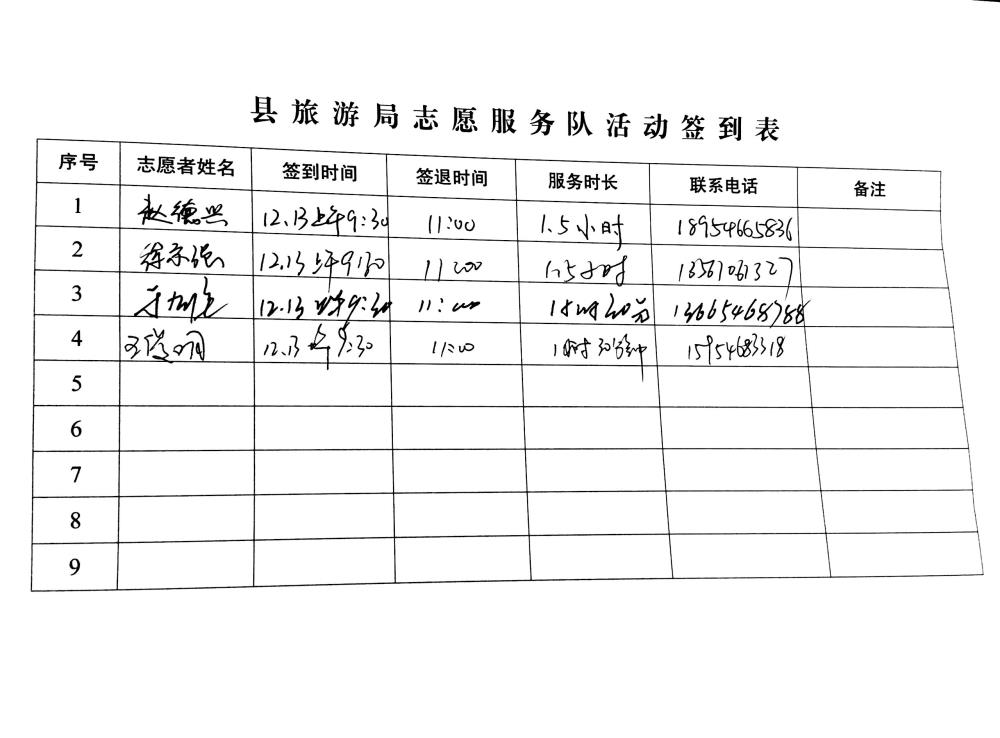 县旅游局志愿服务队活动签到表
序号 志愿者姓名 签到时间 签退时间 服务时长 联系电话 备注
1 赵德兴 12.13上午9:30 11:00 1.5小时 18954665836
2 12.13上午9:30 11:00 1.5小时 13561061327
3 12.13上午9:30 11:00 13665468788
4 12.13上午9:30 11:00 1小时30分钟 15954683318
5
6
7
8
9